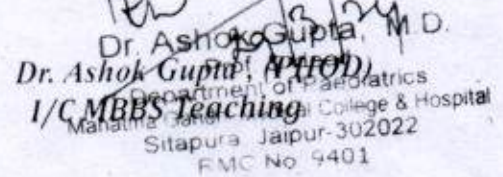 Dr. Ashok Gupta, M.D.
Dr. Ashok Gupta, (PHOD)
Department of Paediatrics
I/C MBBS Teaching
Mahatma Gandhi Medical College & Hospital
Sitapura Jaipur-302022
RMC No 9401